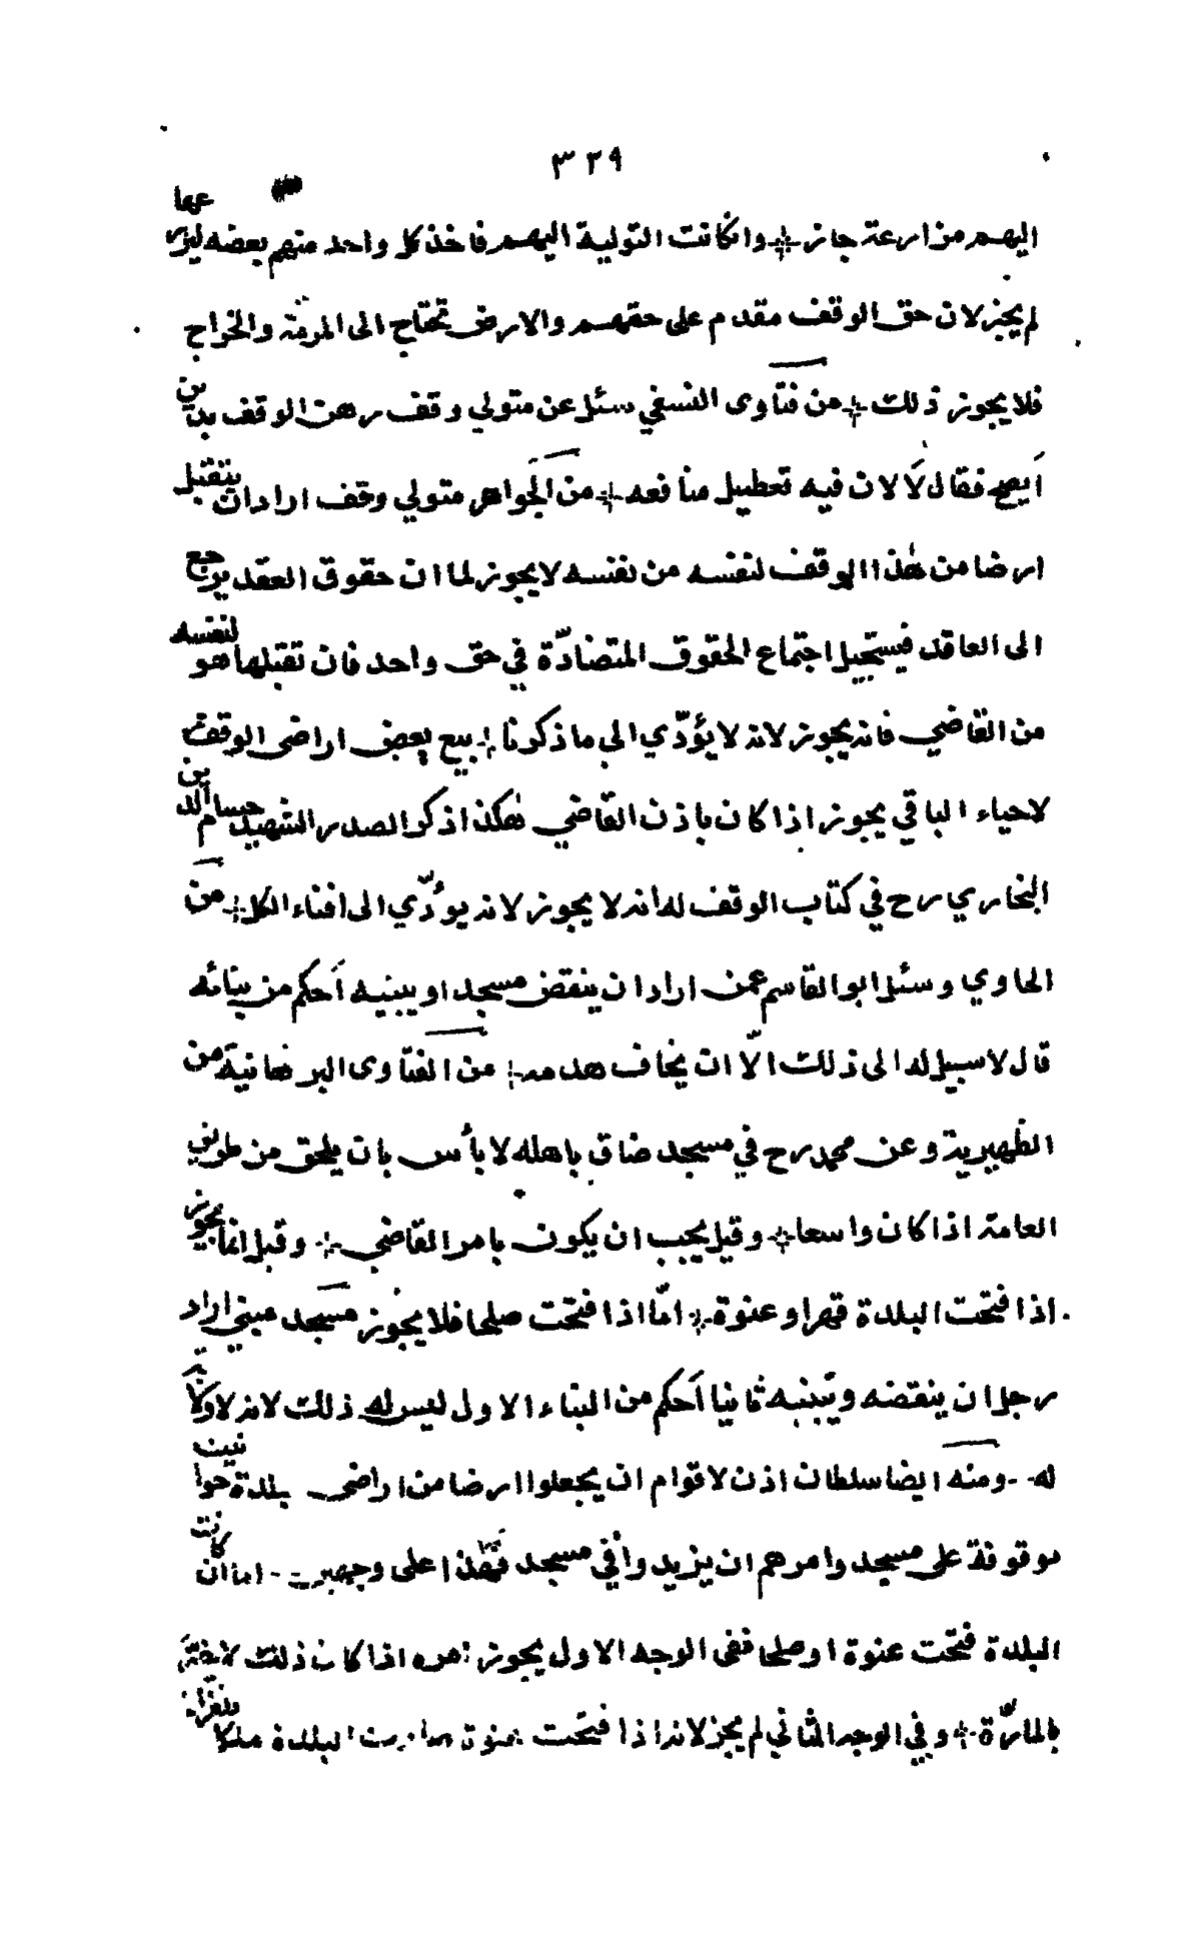 ٣٢٩
اليهم من ارعة جاز وانكانت التولية اليهم فاخذ كل واحد منهم بعضه ليزرعها
لم يجز لان حق الوقف مقدم على حقهم والارض تحتاج الى المرمّة والخراج
فلا يجوز ذلك من فتاوى النسفي سئل عن متولي وقف رهن الوقف بدين
أيصح فقال لا لان فيه تعطيل منافعه من الجواهر متولي وقف اراد ان يتقبل
ارضا من هذا الوقف لنفسه من نفسه لا يجوز لما ان حقوق العقد يرجع
الى العاقد فيستحيل اجتماع الحقوق المتضادّة في حق واحد فان تقبلها هو لنفسه
من القاضي فانه يجوز لانه لا يؤدّي الى ما ذكرنا بيع بعض اراضى الوقف
لاحياء الباقي يجوز اذا كان باذن القاضي هكذا ذكر الصدر الشهيد حسام الدين
البخاري رح في كتاب الوقف له انه لا يجوز لانه يؤدّي الى افناء الكل من
الحاوي وسئل ابو القاسم عمن اراد ان ينقض مسجد او يبنيه أحكم من بنائه
قال لا سبيل له الى ذلك الّا ان يخاف هدمه من الفتاوى البرهانية من
الظهيرية وعن محمد رح في مسجد ضاق باهله لا بأس بان يلحق من طريق
العامة اذا كان واسعا وقيل يجب ان يكون بامر القاضي وقيل انما يجوز
اذا فتحت البلدة قهرا وعنوة امّا اذا فتحت صلحا فلا يجوز مسجد مبني اراد
رجل ان ينقضه ويبنيه ثانيا أحكم من البناء الاول ليس له ذلك لانه لا ولاية
له ومنه ايضا سلطان اذن لاقوام ان يجعلوا ارضا من اراضى بلدة حوانيت
موقوفة على مسجد وامرهم ان يزيدوا في مسجد فهذا على وجهين اما ان كانت
البلدة فتحت عنوة او صلحا ففى الوجه الاول يجوز امره اذا كان ذلك
بالمارّة وفي الوجه الثاني لم يجز لانه اذا فتحت عنوة صارت البلدة ملكا